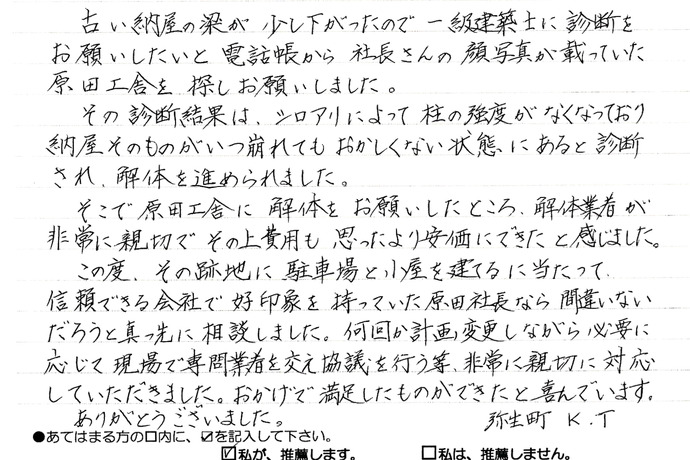 古い納屋の梁が少し下がったので一級建築士に診断を
お願いしたいと電話帳から社長さんの顔写真が載っていた
原田工舎を探しお願いしました。
その診断結果は、シロアリによって柱の強度がなくなっており
納屋そのものがいつ崩れてもおかしくない状態にあると診断
され、解体を進められました。
そこで原田工舎に解体をお願いしたところ、解体業者が
非常に親切でその上費用も思ったより安価にできたと感じました。
この度、その跡地に駐車場と小屋を建てるに当たって、
信頼できる会社で好印象を持っていた原田社長なら間違いない
だろうと真っ先に相談しました。何回か計画変更しながら必要に
応じて現場で専門業者を交え協議を行う等、非常に親切に対応
していただきました。おかげで満足したものができたと喜んでいます。
ありがとうございました。 弥生町 K.T
●あてはまる方の口内に、☑を記入して下さい。
☑私が、推薦します。 □私は、推薦しません。